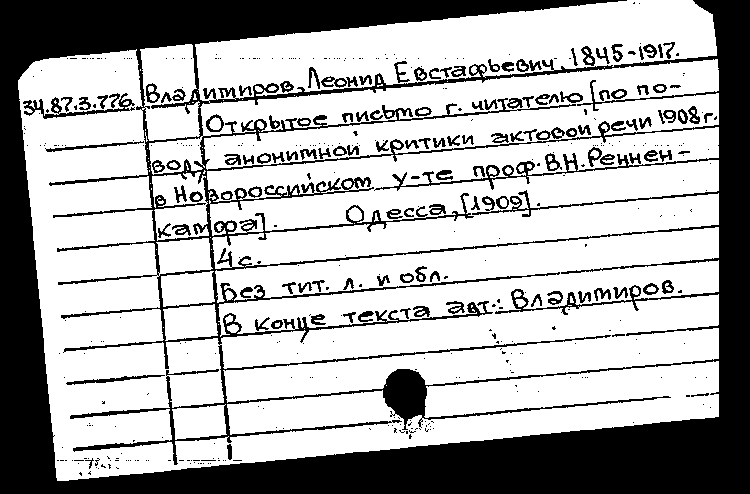 34.87.3.776. Владимиров, Леонид Евстафьевич, 1845-1917.
Открытое письмо г. читателю [по по-
воду анонимной критики актовой речи 1908 г.
в Новороссийском у-те проф. В.Н. Реннен-
кампфа]. Одесса, [1909].
4 с.
Без тит. л. и обл.
В конце текста авт.: Владимиров.